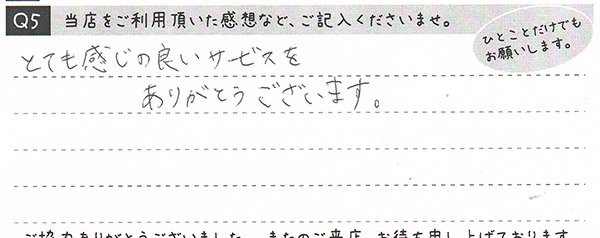 Q5 当店をご利用頂いた感想など、ご記入くださいませ。
ひとことだけでも
お願いします。
とても感じの良いサービスを
ありがとうございます。
ご協力ありがとうございました。またのご来店、お待ち申し上げております。